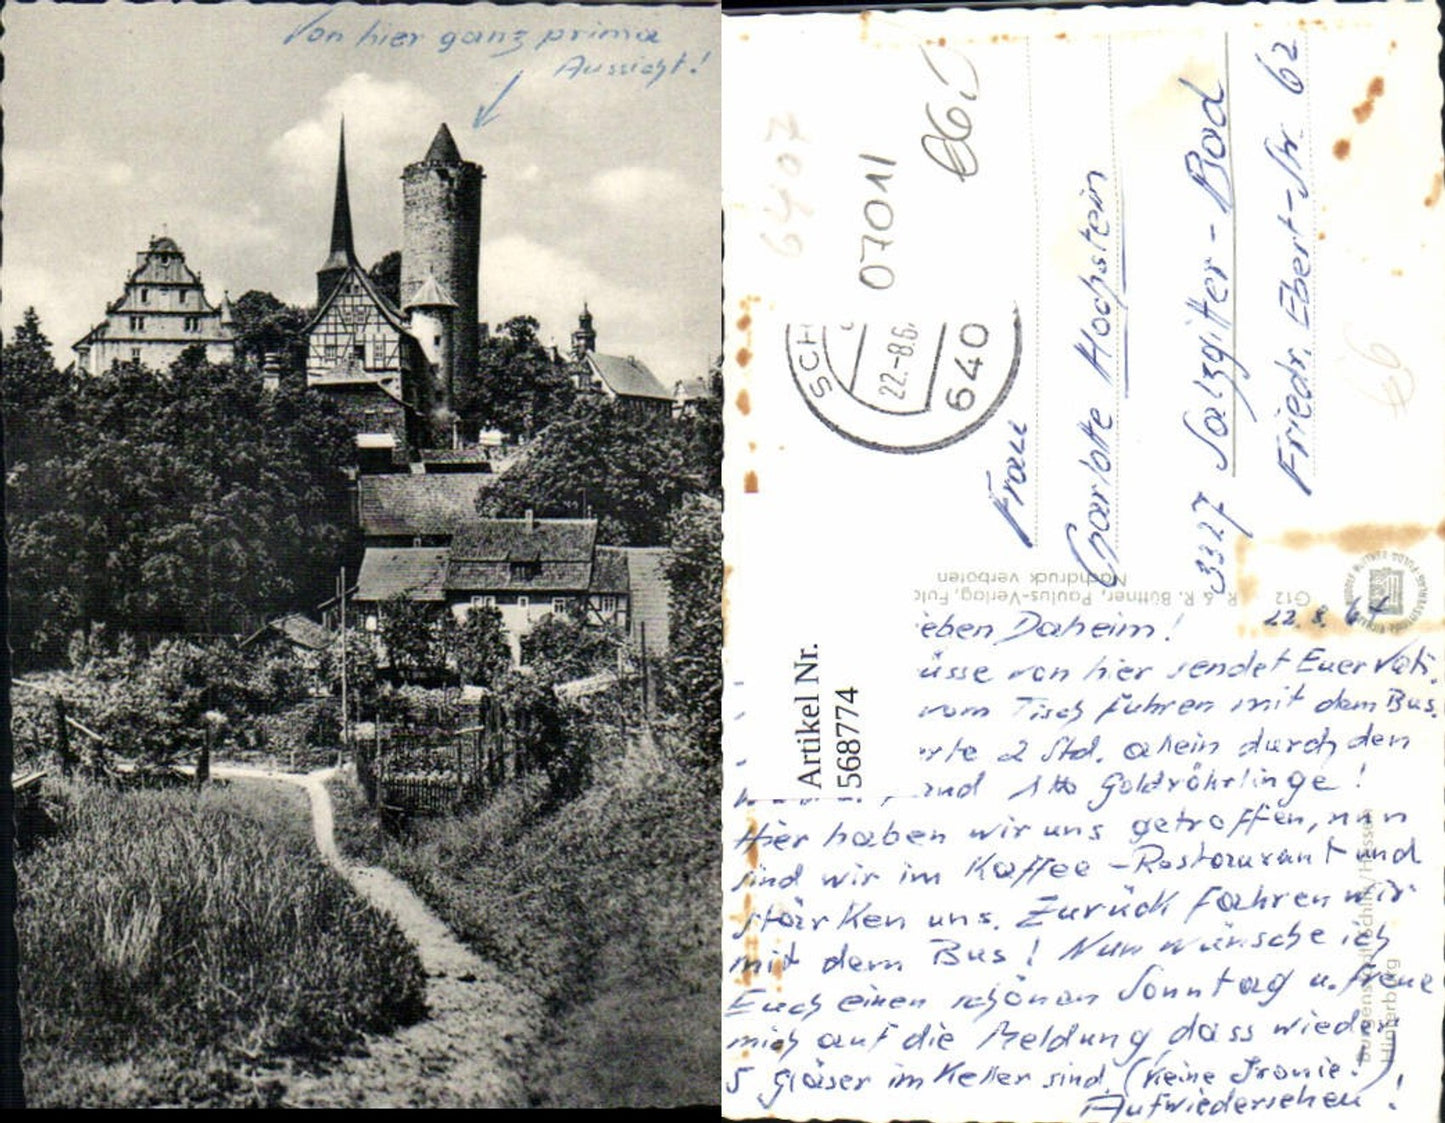 Von hier ganz prima
Aussicht!
6407
07011
SCH
22.-8.6
640
Frau
Charlotte Hochstein
3327 Salzgitter-Bad
Friedr. Ebert-Str. 62
R. & R. Büttner, Paulus-Verlag, Fuld
Nachdruck verboten
G12
Artikel Nr.
568774
22.8.64
ieben Daheim!
üsse von hier sendet Euer Vati.
vom Tisch fuhren mit dem Bus.
rte 2 Std. allein durch den
and 1 Goldröhrlinge!
Hier haben wir uns getroffen, nun
sind wir im Kaffee-Restaurant und
stärken uns. Zurück fahren wir
mit dem Bus! Nun wünsche ich
Euch einen schönen Sonntag u. freue
mich auf die Meldung dass wieder
5 Gläser im Keller sind. (Keine Ironie!)
Aufwiedersehen!
Burgenstadt Schlitz/Hessen
Hinterburg